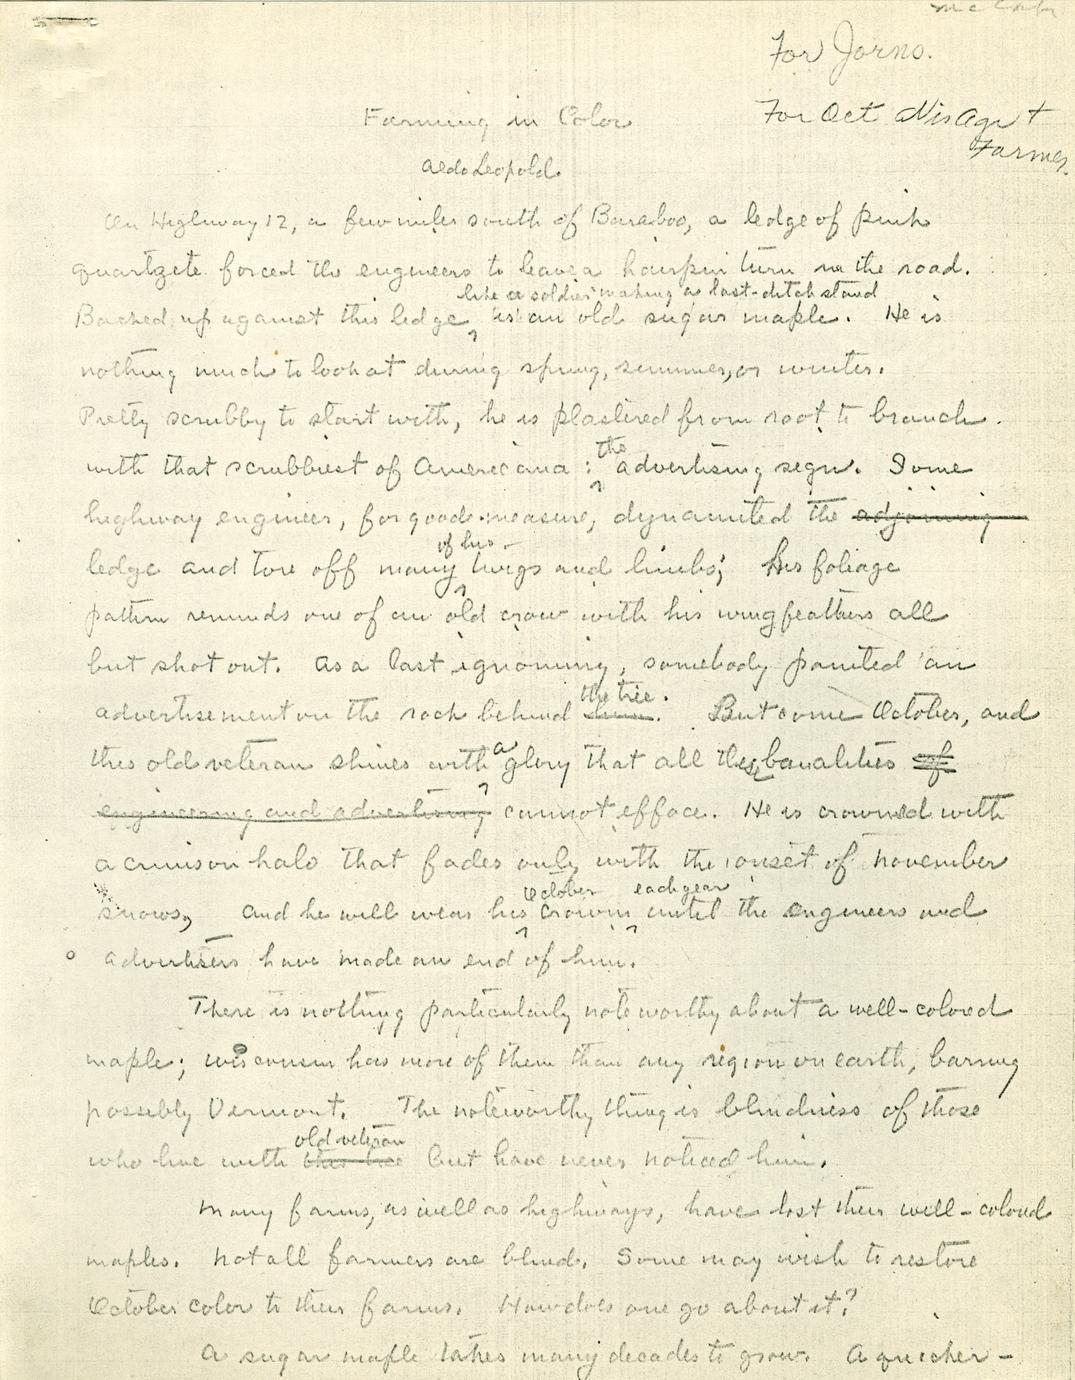 For Jorns.
For Oct Wis Agr +
Farmer.
Farming in Color
Aldo Leopold
On Highway 12, a few miles south of Baraboo, a ledge of pink
quartzite forced the engineers to leave a hairpin turn in the road.
like a soldier making a last-ditch stand
Backed up against this ledge, is an old sugar maple. He is
nothing much to look at during spring, summer, or winter.
Pretty scrubby to start with, he is plastered from root to branch
the
with that scrubbiest of Americana: advertising sign. Some
highway engineer, for good measure, dynamited the adjoining
of his
ledge and tore off many twigs and limbs; his foliage
pattern reminds one of an old crow with his wing feathers all
but shot out. As a last ignominy, somebody painted an
the tree.
advertisement on the rock behind him. But come October, and
a
this old veteran shines with glory that all these banalities of
engineering and advertising cannot efface. He is crowned with
a crimson halo that fades only with the onset of November
October each year
snows, and he will wear his crown until the engineers and
advertisers have made an end of him.
There is nothing particularly noteworthy about a well-colored
maple; Wisconsin has more of them than any region on earth, barring
possibly Vermont. The noteworthy thing is blindness of those
old veteran
who live with this tree but have never noticed him.
Many farms, as well as highways, have lost their well-colored
maples. Not all farmers are blind. Some may wish to restore
October color to their farms. How does one go about it?
A sugar maple takes many decades to grow. A quicker-